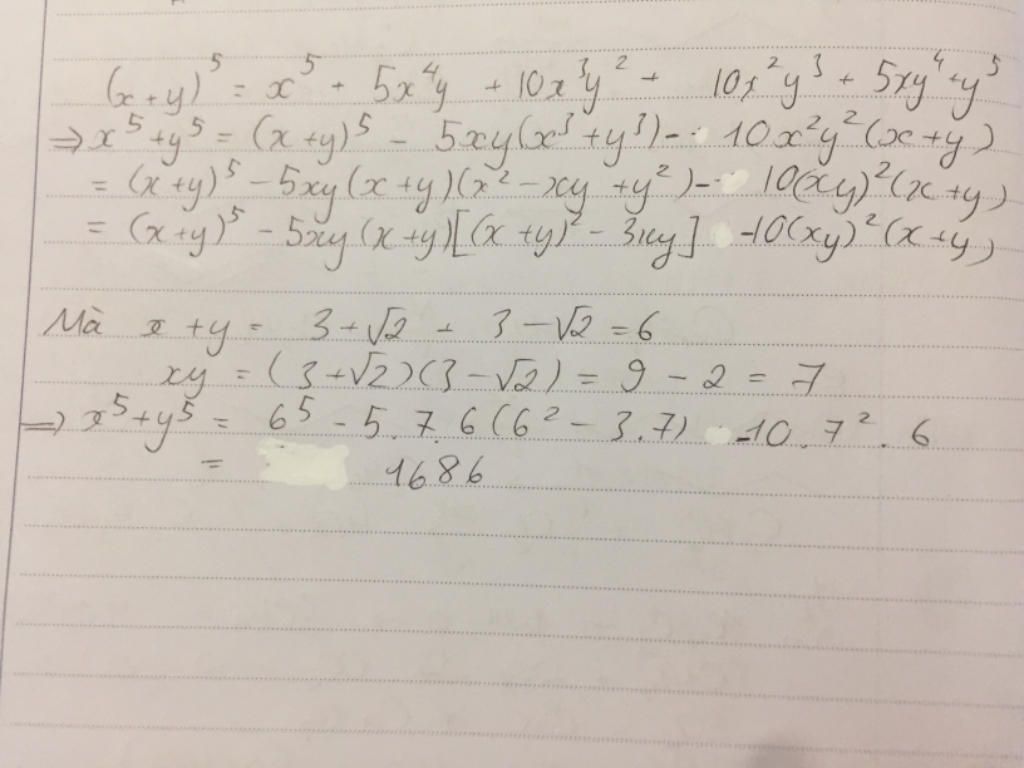 (x+y)⁵ = x⁵ + 5x⁴y + 10x³y² + 10x²y³ + 5xy⁴ + y⁵
⇒ x⁵ + y⁵ = (x+y)⁵ - 5xy(x³ + y³) - 10x²y²(x+y)
= (x+y)⁵ - 5xy(x+y)(x² - xy + y²) - 10(xy)²(x+y)
= (x+y)⁵ - 5xy(x+y)[(x+y)² - 3xy] - 10(xy)²(x+y)
Mà x + y = 3 + √2 + 3 - √2 = 6
xy = (3+√2)(3-√2) = 9 - 2 = 7
⇒ x⁵ + y⁵ = 6⁵ - 5.7.6(6² - 3.7) - 10.7².6
= 1686